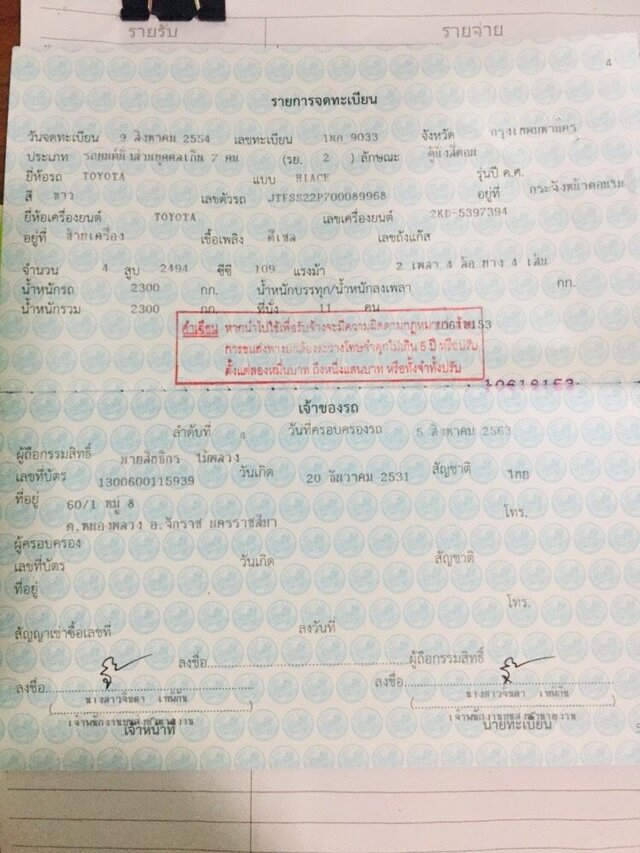 รายรับ รายจ่าย
4
รายการจดทะเบียน
วันจดทะเบียน 9 สิงหาคม 2554 เลขทะเบียน 9033 จังหวัด กรุงเทพมหานคร
ประเภท รถยนต์นั่งส่วนบุคคลเกิน 7 คน (รย. 2 ) ลักษณะ ตู้นั่งสี่ตอน
ยี่ห้อรถ TOYOTA แบบ HIACE รุ่นปี ค.ศ.
สี ขาว เลขตัวรถ JTFSS22P700089968 อยู่ที่ กระจังหน้าตอนใน
ยี่ห้อเครื่องยนต์ TOYOTA เลขเครื่องยนต์ 2KD-5397394
อยู่ที่ ซ้ายเครื่อง เชื้อเพลิง ดีเซล เลขถังแก๊ส
จำนวน 4 สูบ 2494 ซีซี 109 แรงม้า 2 เพลา 4 ล้อ ยาง 4 เส้น
น้ำหนักรถ 2300 กก. น้ำหนักบรรทุก/น้ำหนักลงเพลา กก.
น้ำหนักรวม 2300 กก. ที่นั่ง 11 คน
คำเตือน หากนำไปใช้เพื่อรับจ้างจะมีความผิดตามกฎหมาย 10618153
การขนส่งทางบกต้องระวางโทษจำคุกไม่เกิน 5 ปี หรือปรับ
ตั้งแต่สองหมื่นบาท ถึงหนึ่งแสนบาท หรือทั้งจำทั้งปรับ
10618153
เจ้าของรถ
ลำดับที่ 4 วันที่ครอบครองรถ 5 สิงหาคม 2563
ผู้ถือกรรมสิทธิ์ นายสิทธิกร ไม้พลวง
เลขที่บัตร 1300600115939 วันเกิด 20 ธันวาคม 2531 สัญชาติ ไทย
ที่อยู่ 60/1 หมู่ 8 โทร.
ต.หนองพลวง อ.จักราช นครราชสีมา
ผู้ครอบครอง
เลขที่บัตร วันเกิด สัญชาติ
ที่อยู่ โทร.
สัญญาเช่าซื้อเลขที่ ลงวันที่
ลงชื่อ ผู้ถือกรรมสิทธิ์
ลงชื่อ ลงชื่อ
นางสาวจินดา นางสาวจินดา
เจ้าพนักงานขนส่งชำนาญงาน เจ้าพนักงานขนส่งชำนาญงาน
เจ้าหน้าที่ นายทะเบียน
5